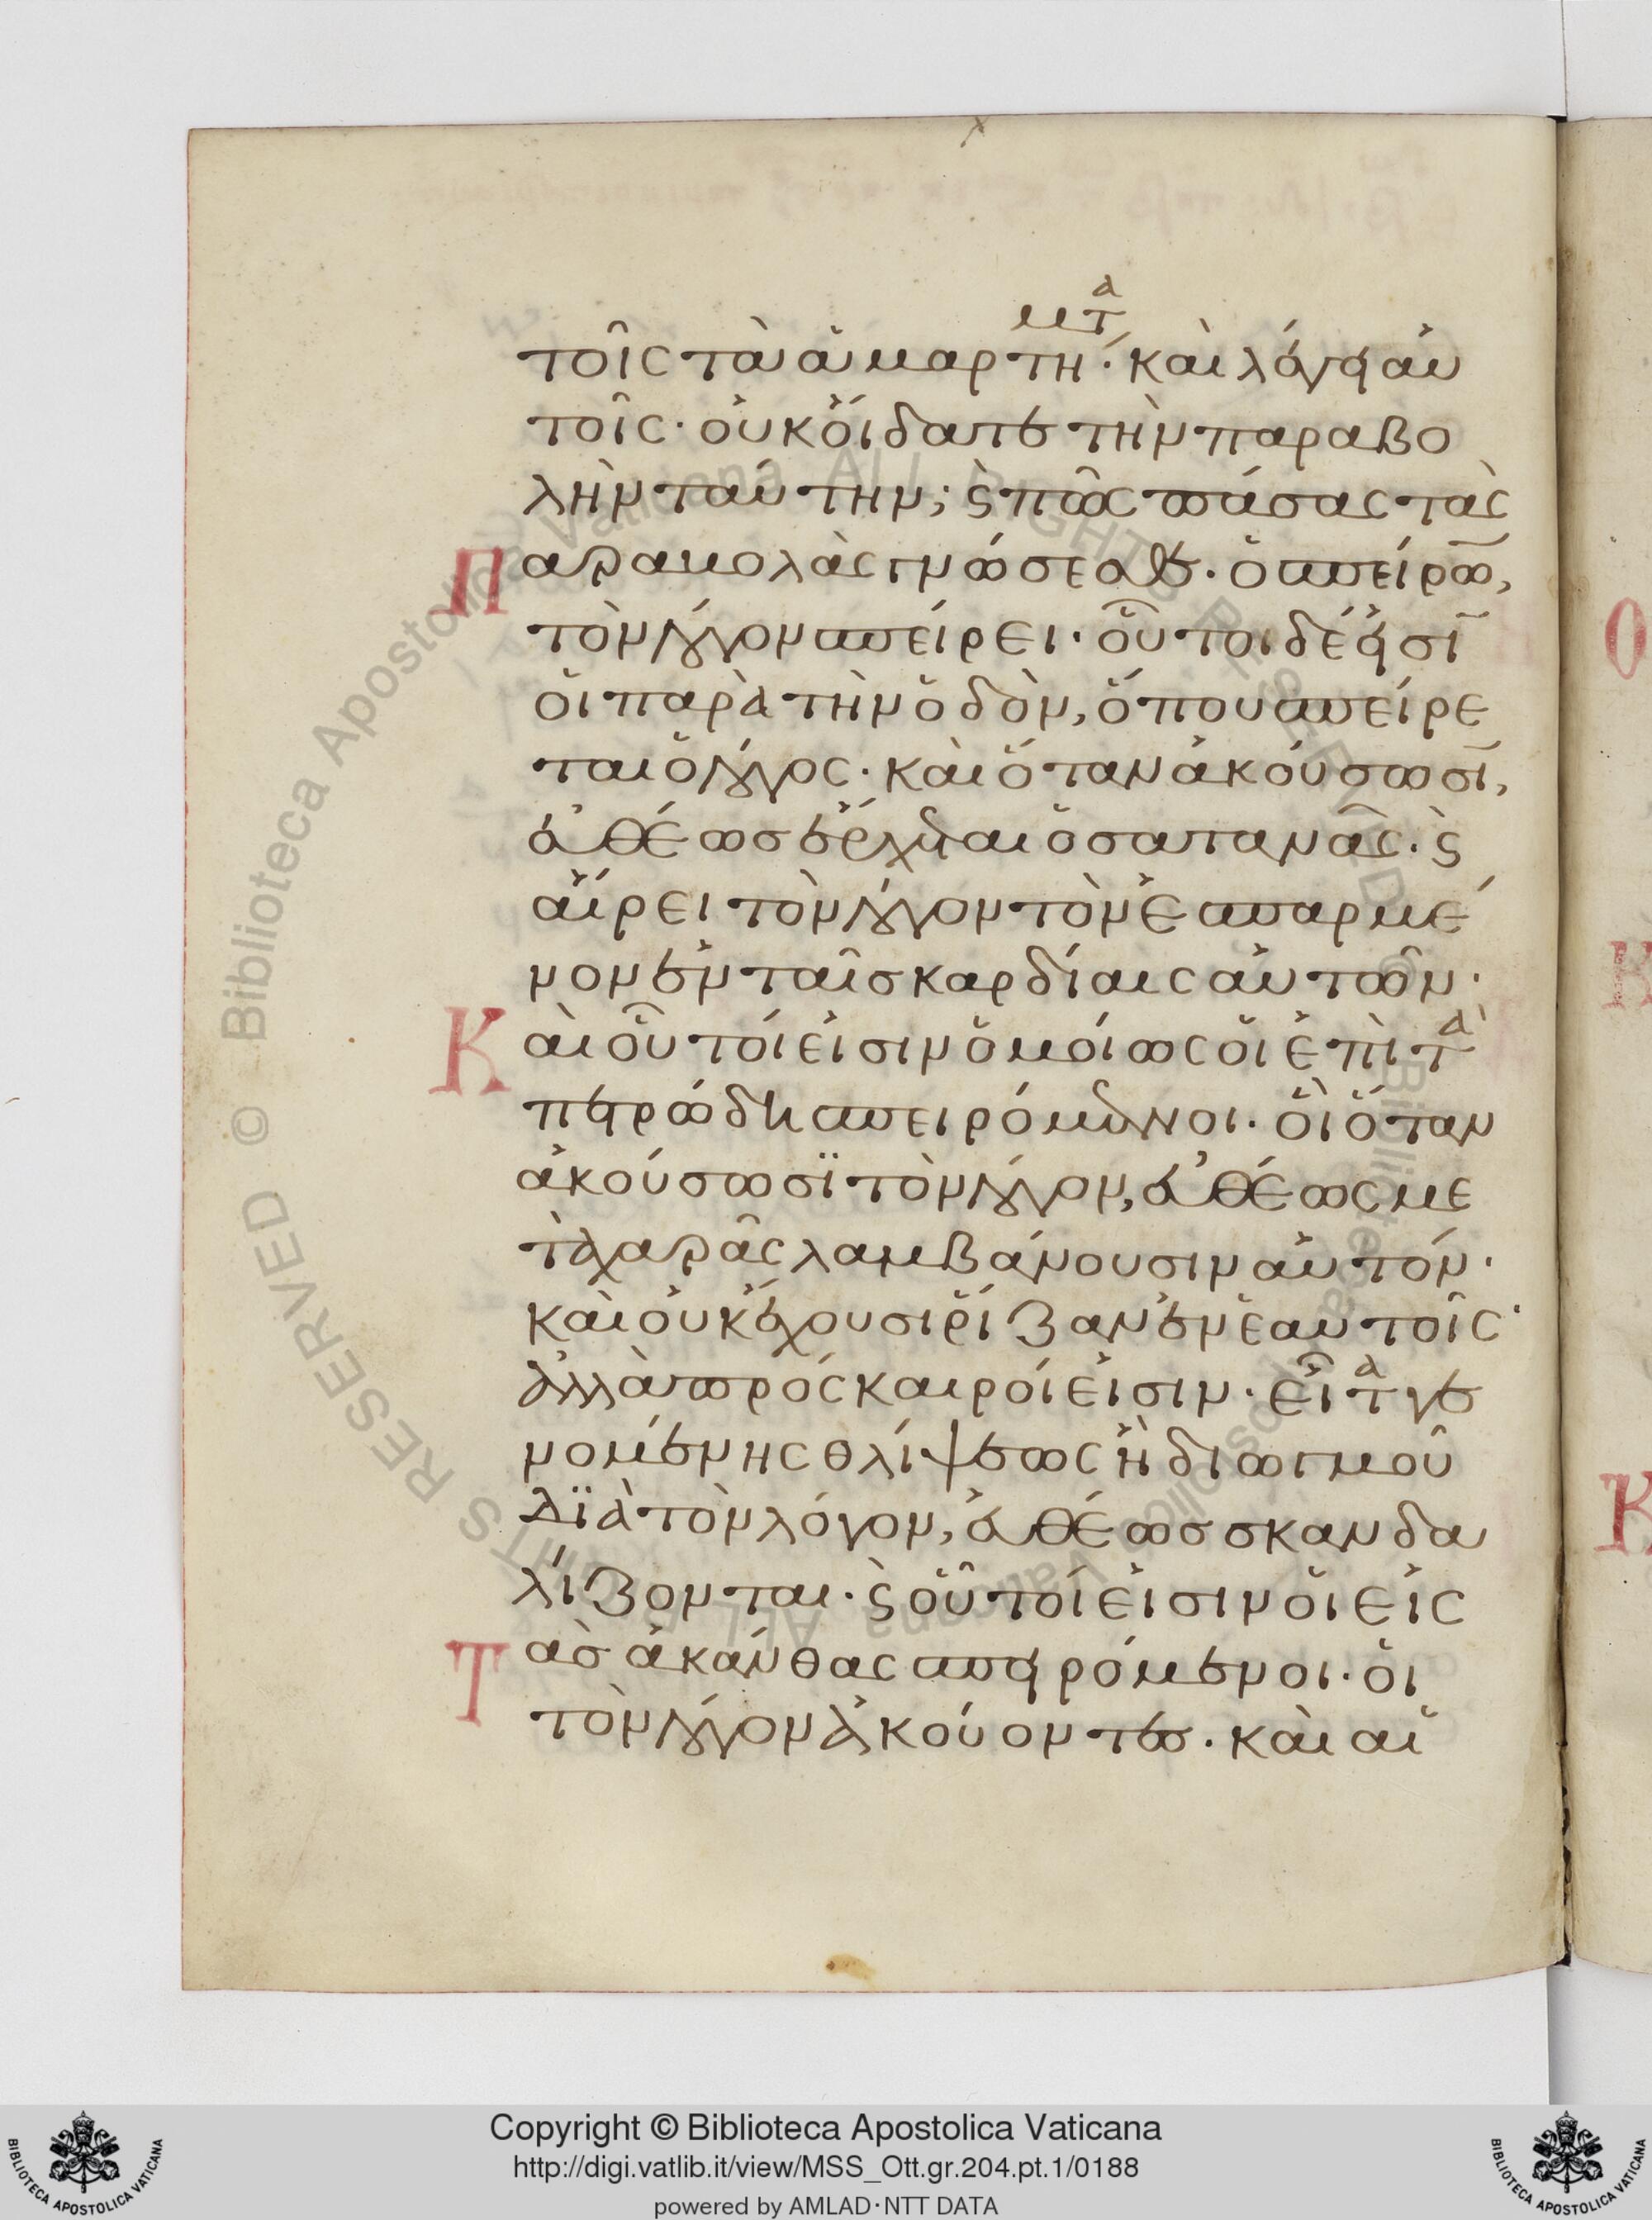 τοῖς τὰ ἁμαρτήματα· καὶ λέγει αὐ
τοῖς· οὐκ οἴδατε τὴν παραβο
λὴν ταύτην; ϛ̀ πῶς πάσας τὰς
Παραβολὰς γνώσεσθε· ὁ σπείρω̅,
τὸν λόγον σπείρει· οὗτοι δέ εἰσῑ
οἱ παρὰ τὴν ὁδὸν, ὅπου σπείρε
ται ὁ λόγος· καὶ ὅταν ἀκούσωσῑ,
εὐθέωσ ἔρχεται ὁ σατανᾶς· ϛ̀
αἴρει τὸν λόγον τὸν ἐσπαρμέ
νον ἐν ταῖσ καρδίαις αὐτῶν·
Καὶ οὗτοί εἰσιν ὁμοίως οἱ ἐπὶ τὰ
πετρώδη σπειρόμενοι· οἳ ὅταν
ἀκούσωσϊ τὸν λόγον, εὐθέως με
τὰ χαρᾶς λαμβάνουσιν αὐτόν·
καὶ οὐκ ἔχουσι ῥίζαν ἐν ἑαυτοῖς·
ἀλλὰ πρόσκαιροί εἰσιν· εἶτα γε
νομένης θλίψεως ἢ διωγμοῦ
Δϊὰ τὸν λόγον, εὐθέωσ σκανδα
λίζονται· ϛ̀ οὗτοί εἰσιν οἱ εἰς
Τὰσ ἀκάνθας σπειρόμενοι· οἱ
τὸν λόγον ἀκούοντεσ· καὶ αἱ
Copyright © Biblioteca Apostolica Vaticana
http://digi.vatlib.it/view/MSS_Ott.gr.204.pt.1/0188
powered by AMLAD·NTT DATA